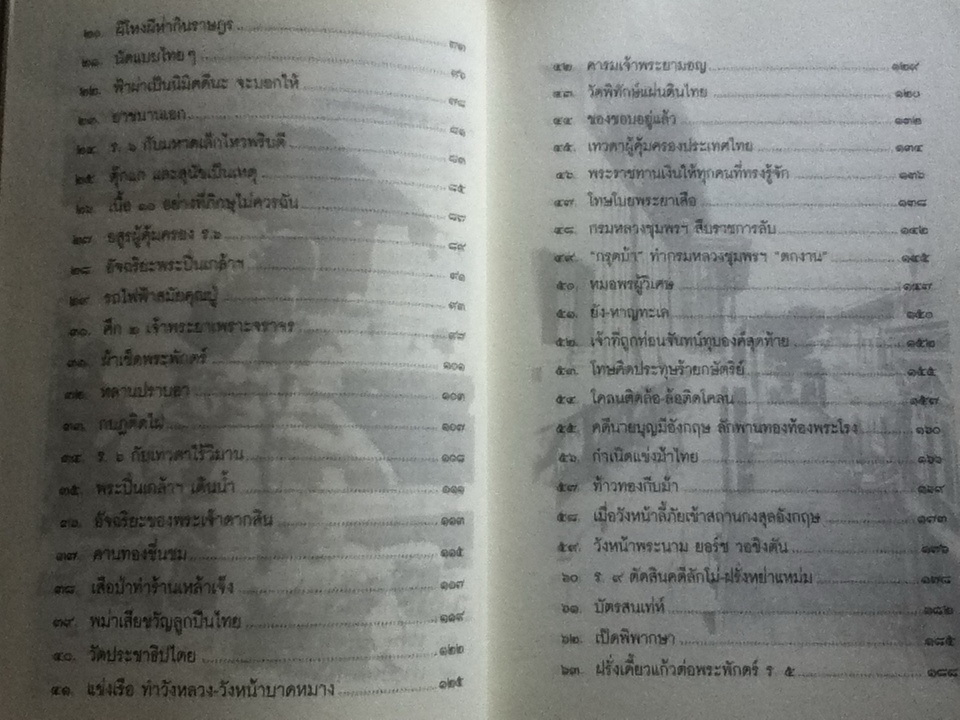 ๒๐. ผีโหงผีห่ากินราษฎร ๗๑
๒๑. นัดแบบไทยๆ ๗๖
๒๒. ฟ้าผ่าเป็นนิมิตดีนะ จะบอกให้ ๗๘
๒๓. อาชนานเอก ๘๑
๒๔ ร. ๖ กับมหาดเล็กไหวพริบดี ๘๓
๒๕ ตุ๊กแก และสุนัขเป็นเหตุ ๘๕
๒๖. เนื้อ ๑๐ อย่างที่ภิกษุไม่ควรฉัน ๘๗
๒๗ อสูรผู้คุ้มครอง ร.๖ ๘๙
๒๘ อัจฉริยะพระปิ่นเกล้าฯ ๙๑
๒๙ รถไฟฟ้าสมัยคุณปู่ ๙๓
๓๐. ศึก ๒ เจ้าพระยาเพราะจราจร ๙๗
๓๑. ผ้าเช็ดพระพักตร์ ๑๐๑
๓๒. หลานปราบอา ๑๐๓
๓๓. กบฏติดไฟ ๑๐๗
๓๔. ร. ๖ กับเทวดาไร้วิมาน ๑๐๘
๓๕. พระปิ่นเกล้าฯ เดินน้ำ ๑๑๑
๓๖. อัจฉริยะของพระเจ้าตากสิน ๑๑๓
๓๗. คานทองชื่นชม ๑๑๕
๓๘. เสือป่าทำร้านเหล้าเจ๊ง ๑๑๗
๓๙. พม่าเสียขวัญลูกปืนไทย ๑๑๙
๔๐. วัดประชาธิปไตย ๑๒๒
๔๑. แข่งเรือ ทำวังหลวง-วังหน้าบาดหมาง ๑๒๕
๔๒. คารมเจ้าพระยามอญ ๑๒๙
๔๓. วัดพิทักษ์แผ่นดินไทย ๑๒๐
๔๔ ของชอบอยู่แล้ว ๑๓๒
๔๕. เทวดาผู้คุ้มครองประเทศไทย ๑๓๔
๔๖. พระราชทานเงินให้ทุกคนที่ทรงรู้จัก ๑๓๖
๔๗. โทษโบยพระยาเสือ ๑๓๘
๔๘. กรมหลวงชุมพรฯ สืบราชการลับ ๑๔๒
๔๙. "กรุดบ้า" ทำกรมหลวงชุมพรฯ "ตกงาน" ๑๔๕
๕๐. หมอพรผู้วิเศษ ๑๔๗
๕๑. ยัง-หาญทะเล ๑๕๐
๕๒. เจ้าที่ถูกท่อนจันทน์ทุบองค์สุดท้าย ๑๕๒
๕๓. โทษคิดประทุษร้ายกษัตริย์ ๑๕๕
๕๔. โคลนติดล้อ-ล้อติดโคลน ๑๕๗
๕๕. คดีนายบุญมีอังกฤษ ลักพานทองท้องพระโรง ๑๖๐
๕๖. กำเนิดแข่งม้าไทย ๑๖๖
๕๗. ท้าวทองกีบม้า ๑๖๙
๕๘. เมื่อวังหน้าลี้ภัยเข้าสถานกงสุลอังกฤษ ๑๗๓
๕๙. วังหน้าพระนาม ยอร์ช วอชิงตัน ๑๗๖
๖๐ ร. ๙ ตัดสินคดีลักโม่-ฝรั่งหย่าแหม่ม ๑๗๘
๖๑. บัตรสนเท่ห์ ๑๘๒
๖๒. เป็ดพิพากษา ๑๘๕
๖๓. ฝรั่งเคี้ยวแก้วต่อพระพักตร์ ร ๕ ๑๘๘